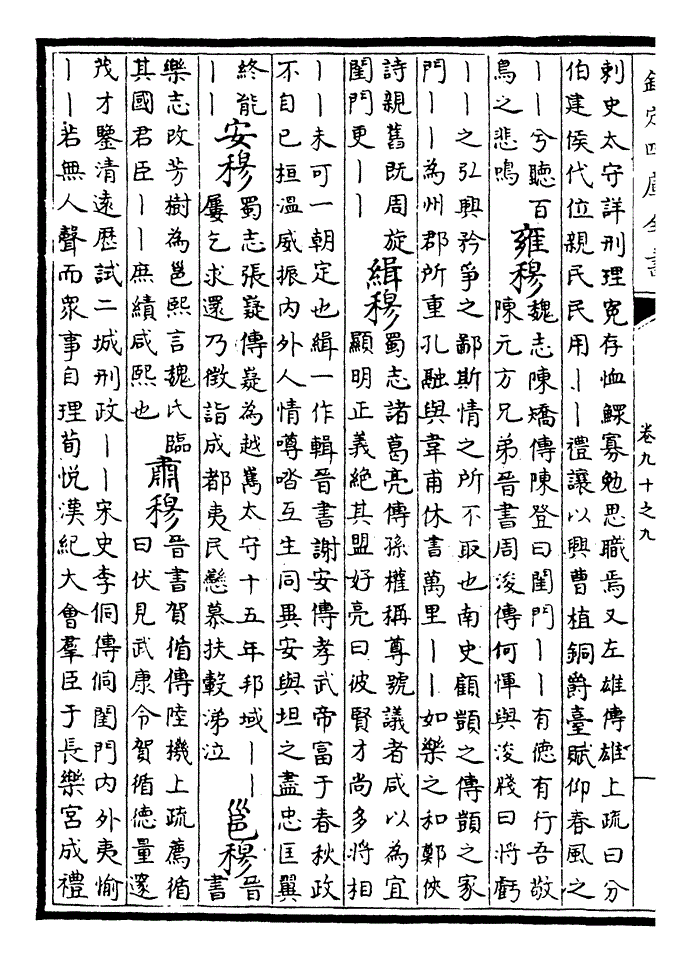 欽定四庫全書
卷九十之九
刺史太守詳刑理冤存恤鰥寡勉思職焉又左雄傳雄上疏曰分
伯建侯代位親民民用丨丨禮讓以興曹植銅爵臺賦仰春風之
丨丨兮聽百
鳥之悲鳴
雍穆
魏志陳矯傳陳登曰閨門丨丨有德有行吾敬
陳元方兄弟晉書周浚傳何惲與浚牋曰將虧
丨丨之弘興矜爭之鄙斯情之所不取也南史顧顗之傳顗之家
門丨丨為州郡所重孔融與韋甫休書萬里丨丨如樂之和鄭俠
詩親舊既周旋
閨門更丨丨
緝穆
蜀志諸葛亮傳孫權稱尊號議者咸以為宜
顯明正義絕其盟好亮曰彼賢才尚多將相
丨丨未可一朝定也緝一作輯晉書謝安傳孝武帝富于春秋政
不自己桓溫威振內外人情噂㗳互生同異安與坦之盡忠匡翼
終能
丨丨
安穆
蜀志張嶷傳嶷為越嶲太守十五年邦域丨丨
屢乞求還乃徵詣成都夷民戀慕扶轂涕泣
邕穆
晉
書
樂志改芳樹為邕熙言魏氏臨
其國君臣丨丨庶績咸熙也
肅穆
晉書賀循傳陸機上疏薦循
曰伏見武康令賀循德量邃
茂才鑒清遠歷試二城刑政丨丨宋史李侗傳侗閨門內外夷愉
丨丨若無人聲而眾事自理荀悅漢紀大會羣臣于長樂宮成禮